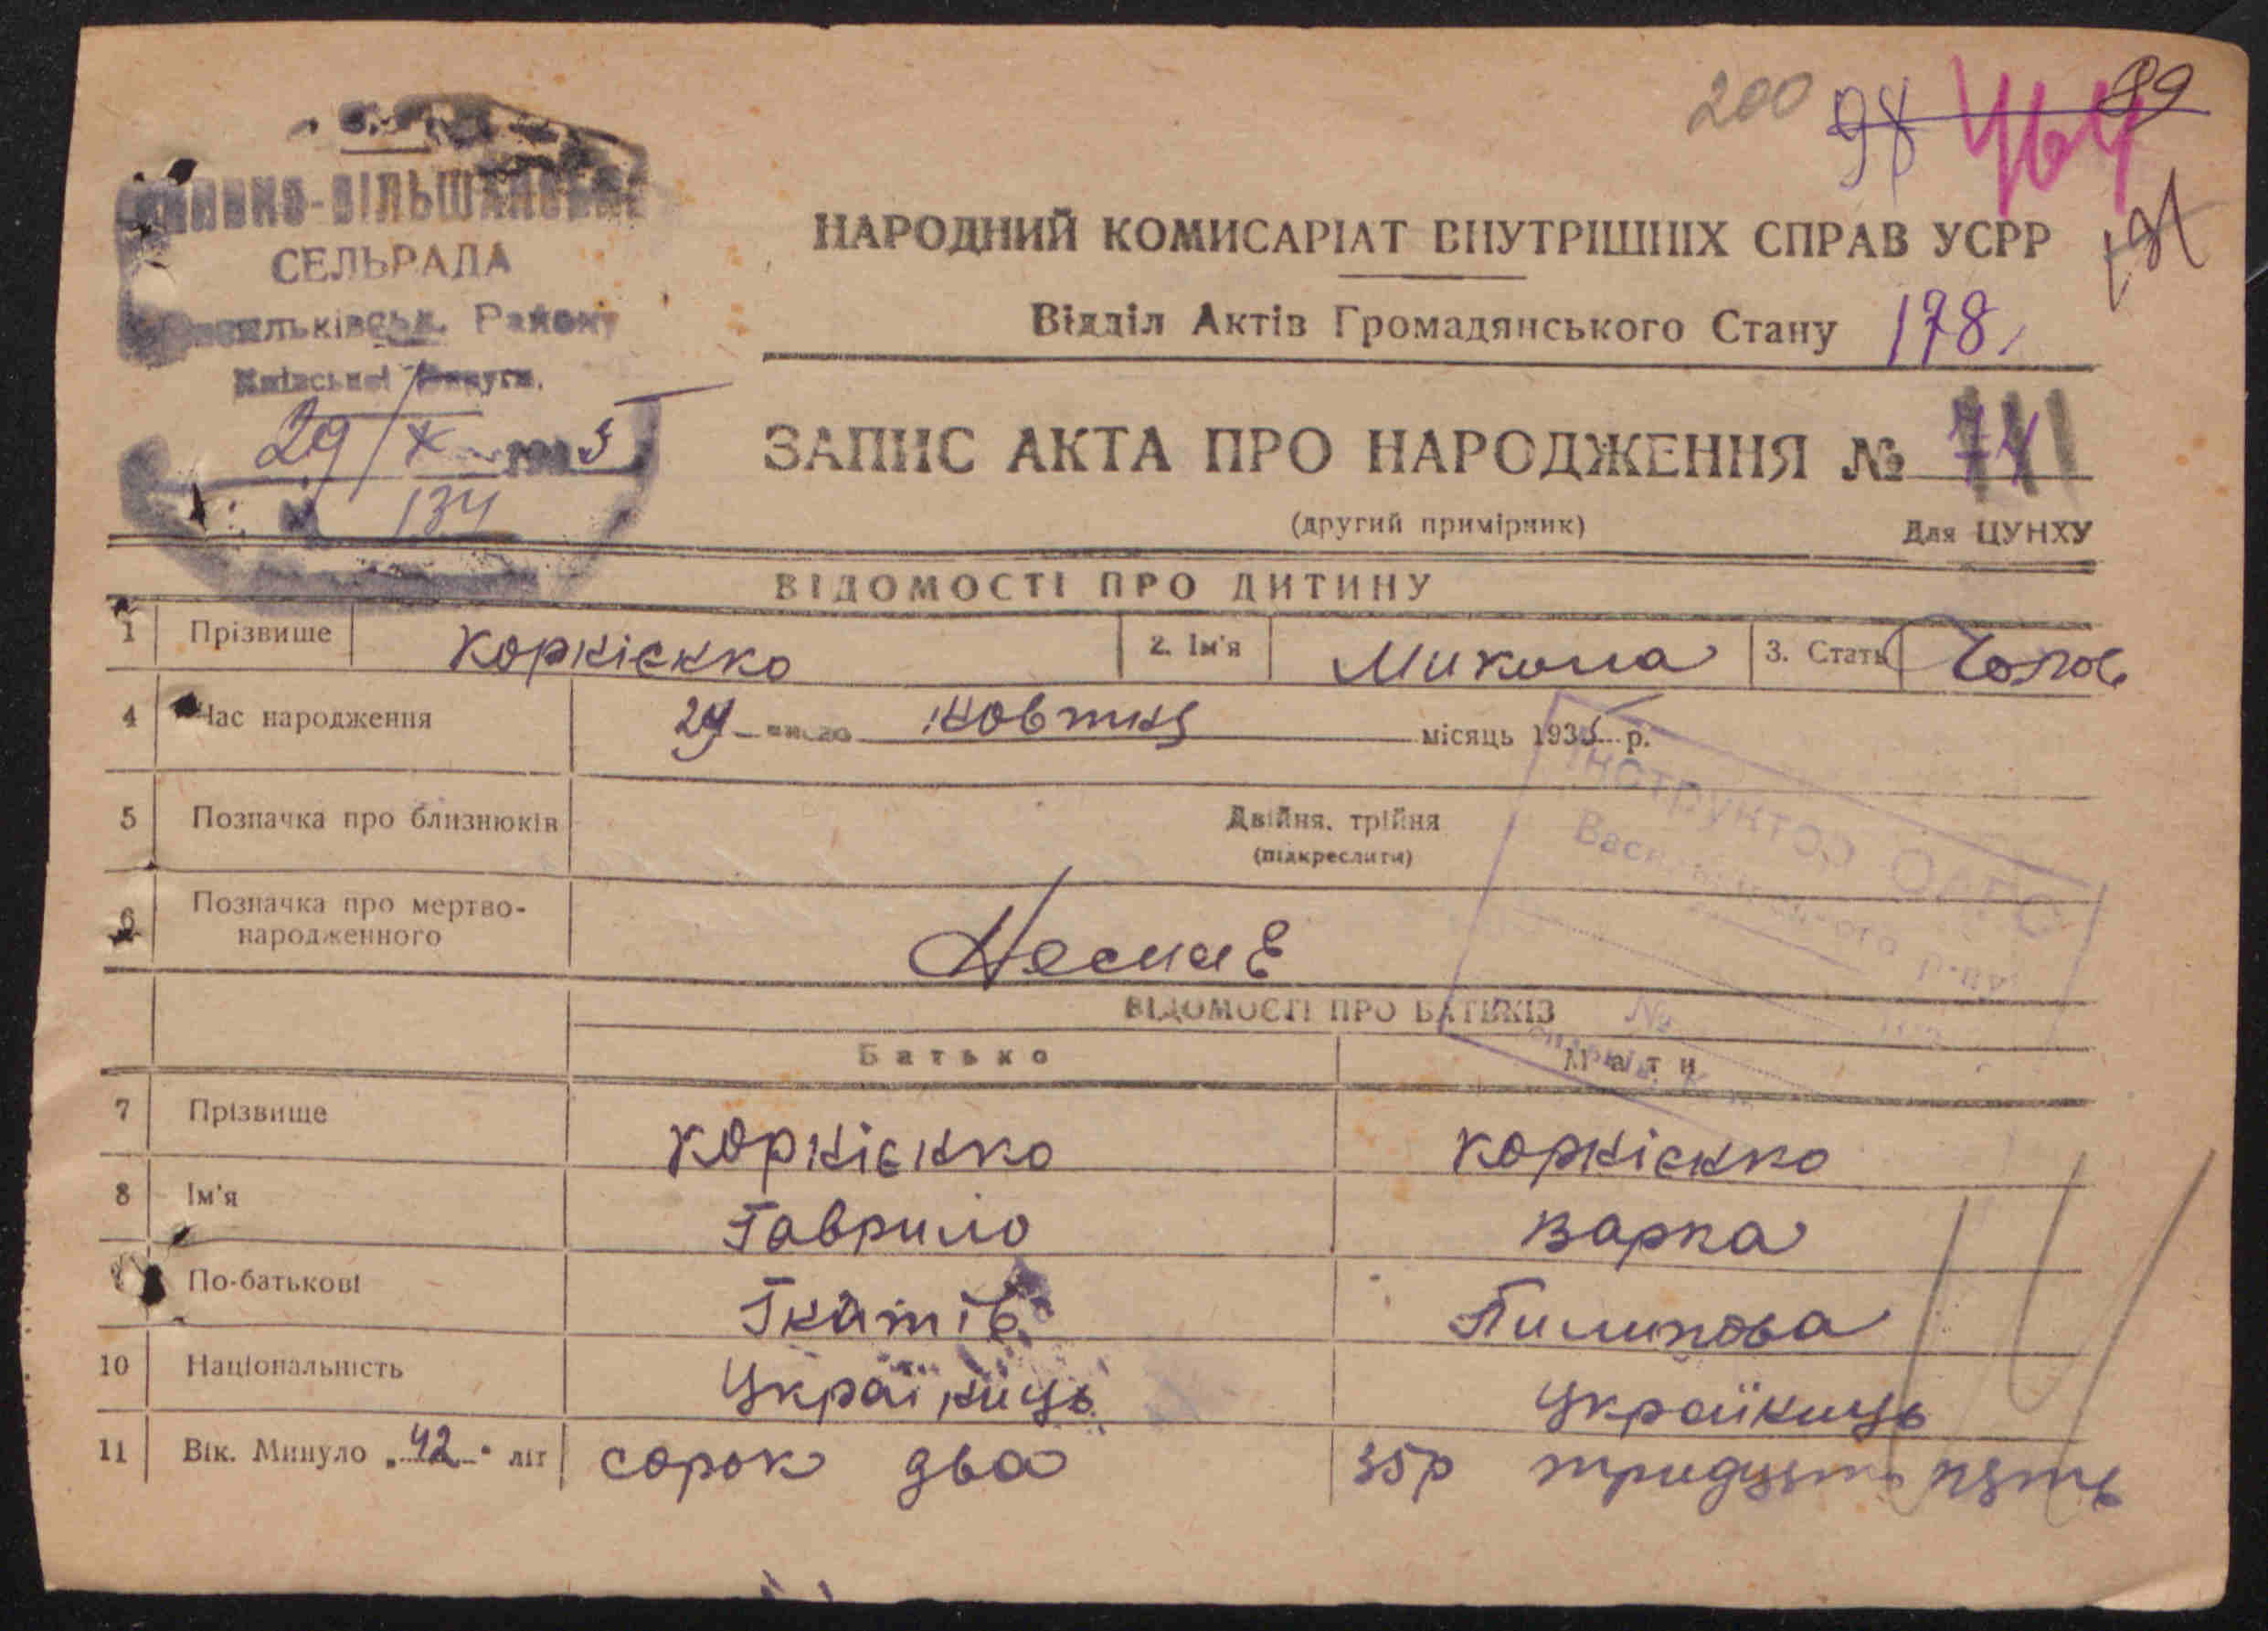 200 98 464 89
ВІЛЬШАНСЬКА
СЕЛЬРАДА
Васильківськ. Району
Київської Округи.
29/X 1935
134
НАРОДНИЙ КОМИСАРІАТ ВНУТРІШНІХ СПРАВ УСРР
Відділ Актів Громадянського Стану 178
ЗАПИС АКТА ПРО НАРОДЖЕННЯ №
(другий примірник) Для ЦУНХУ
ВІДОМОСТІ ПРО ДИТИНУ
1 Прізвище Корнієнко 2. Ім'я Микола 3. Стать Чолов
4 Час народження 29 число жовтня місяць 1935 р.
Інструктор ОАГС
5 Позначка про близнюків Двійня, трійня
(підкреслити)
Васильківського р-ну
6 Позначка про мертво-
народженного
Немає
№
ВІДОМОСТІ ПРО БАТЬКІВ
Батько Мати
7 Прізвище Корнієнко Корнієнко
8 Ім'я Гаврило Варка
По-батькові Гнатів Пилипова
10 Національність Українець Українець
11 Вік. Минуло „42" літ сорок два 35р тридцять пять